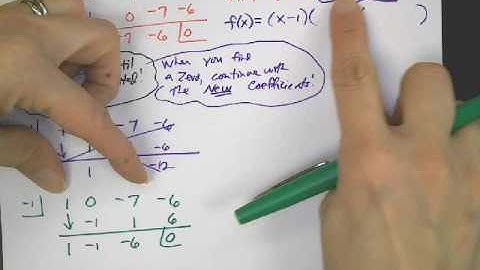 0 -7 -6
-7 -6 0
f(x) = (x-1)( )
When you find
a Zero, continue with
the New Coefficients!
-7 -6
-6
1 -12
-1 1 0 -7 -6
-1 1 6
1 -1 -6 0